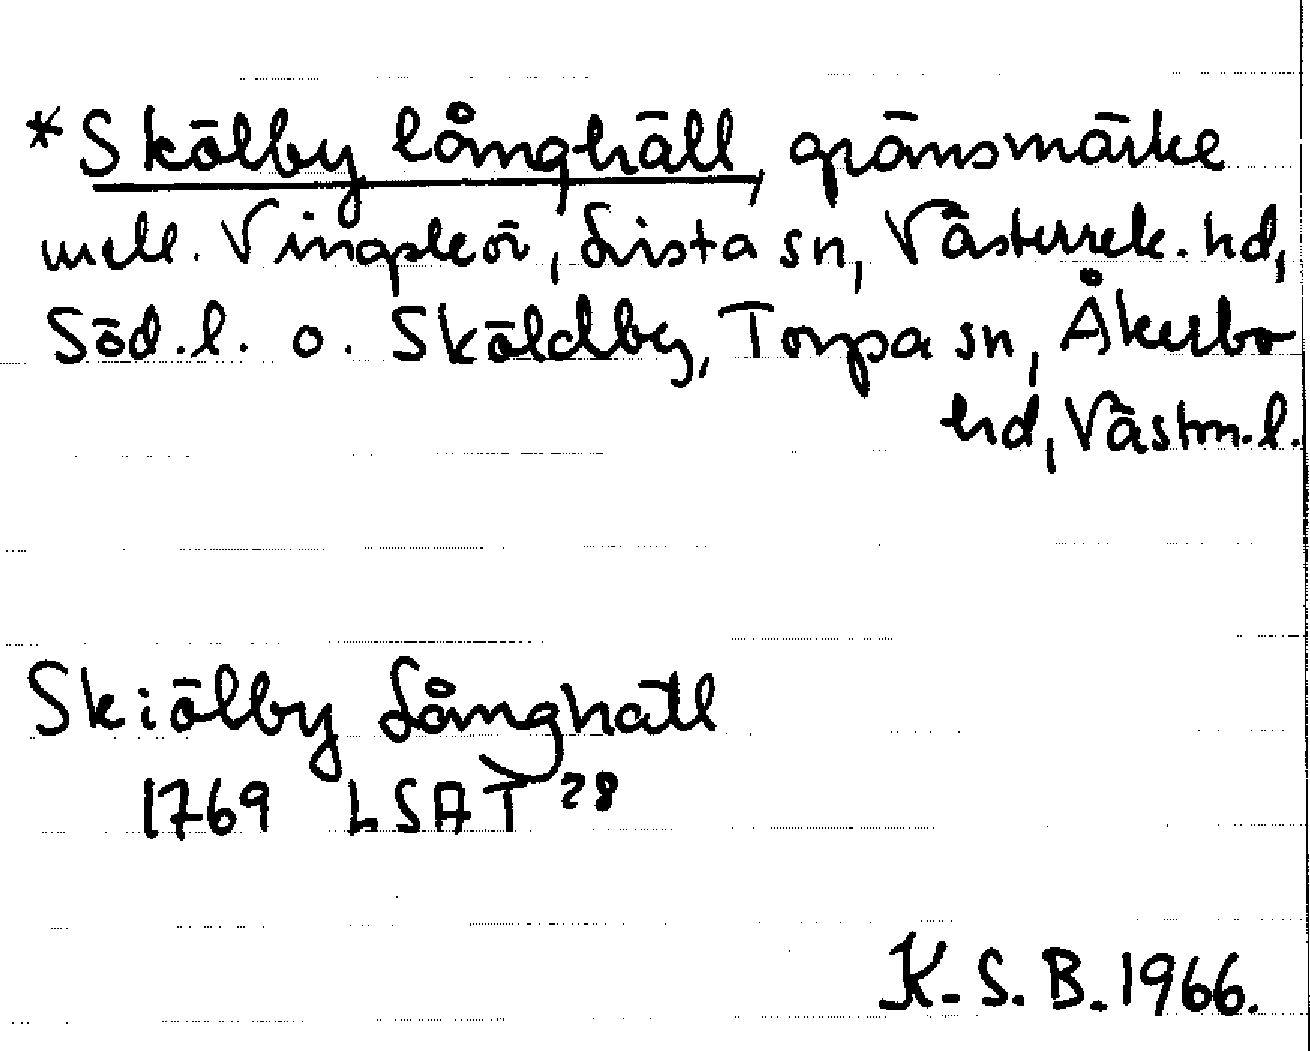 *Skölby långhäll, gränsmärke
mell. Vingsleör, Lista sn, Västerrek. hd,
Söd.l. o. Sköldby, Torpa sn, Åkerbo
hd, Västm.l.
Skiölby Långhäll
1769 LSAT 28
K.S.B. 1966.